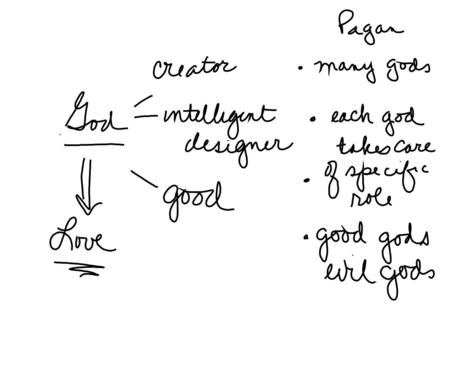 creator
God
intelligent
designer
good
Love
Pagan
• many gods
• each god
takes care
• of specific
role
• good gods
evil gods